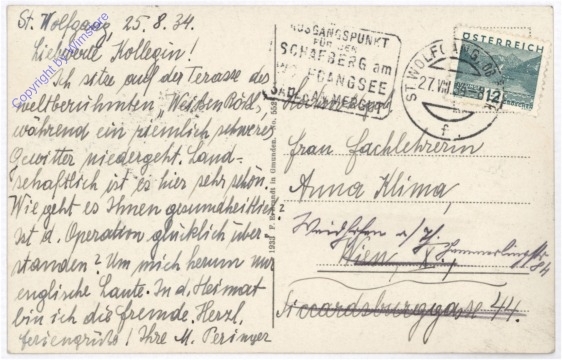 St. Wolfgang, 25.8.34.
Liebwerte Kollegin!
Ich sitze auf der Terasse des
weltberühmten „Weißen Rößl",
während ein ziemlich schweres
Gewitter niedergeht. Land-
schaftlich ist es hier sehr schön.
Wie geht es Ihnen gesundheitlich?
Ist d. Operation glücklich über-
standen? Um mich herum nur
englische Laute. In d. Heimat
bin ich die Fremde. Herzl.
Feriengrüße! Ihre M. Peringer
Copyright by WIMStore
1933 F. in Gmunden. No.
AUSGANGSPUNKT
FÜR DEN
SCHAFBERG am
WOLFGANGSEE
SALZKAMMERGUT
ST. WOLFGANG
27.VIII
f
ÖSTERREICH
12
Frau Fachlehrerin
Anna Klima,
Waidhofen a/Y.
Wien, X.,
84
Siccardsburggasse 44.